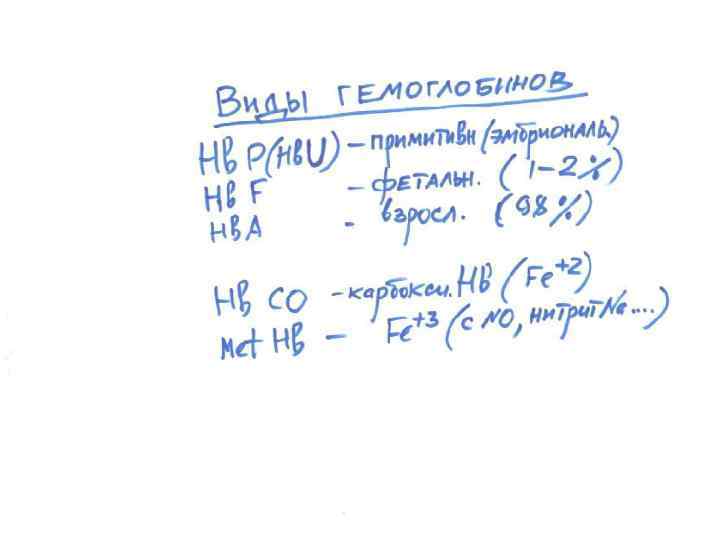 Виды гемоглобинов
Hb P(HbU) – примитивн (эмбриональ.)
Hb F – фетальн. (1–2%)
HbA - взросл. (98%)
Hb CO – карбокси. Hb (Fe+2)
Met Hb – Fe+3 (с NO, нитрит Na....)